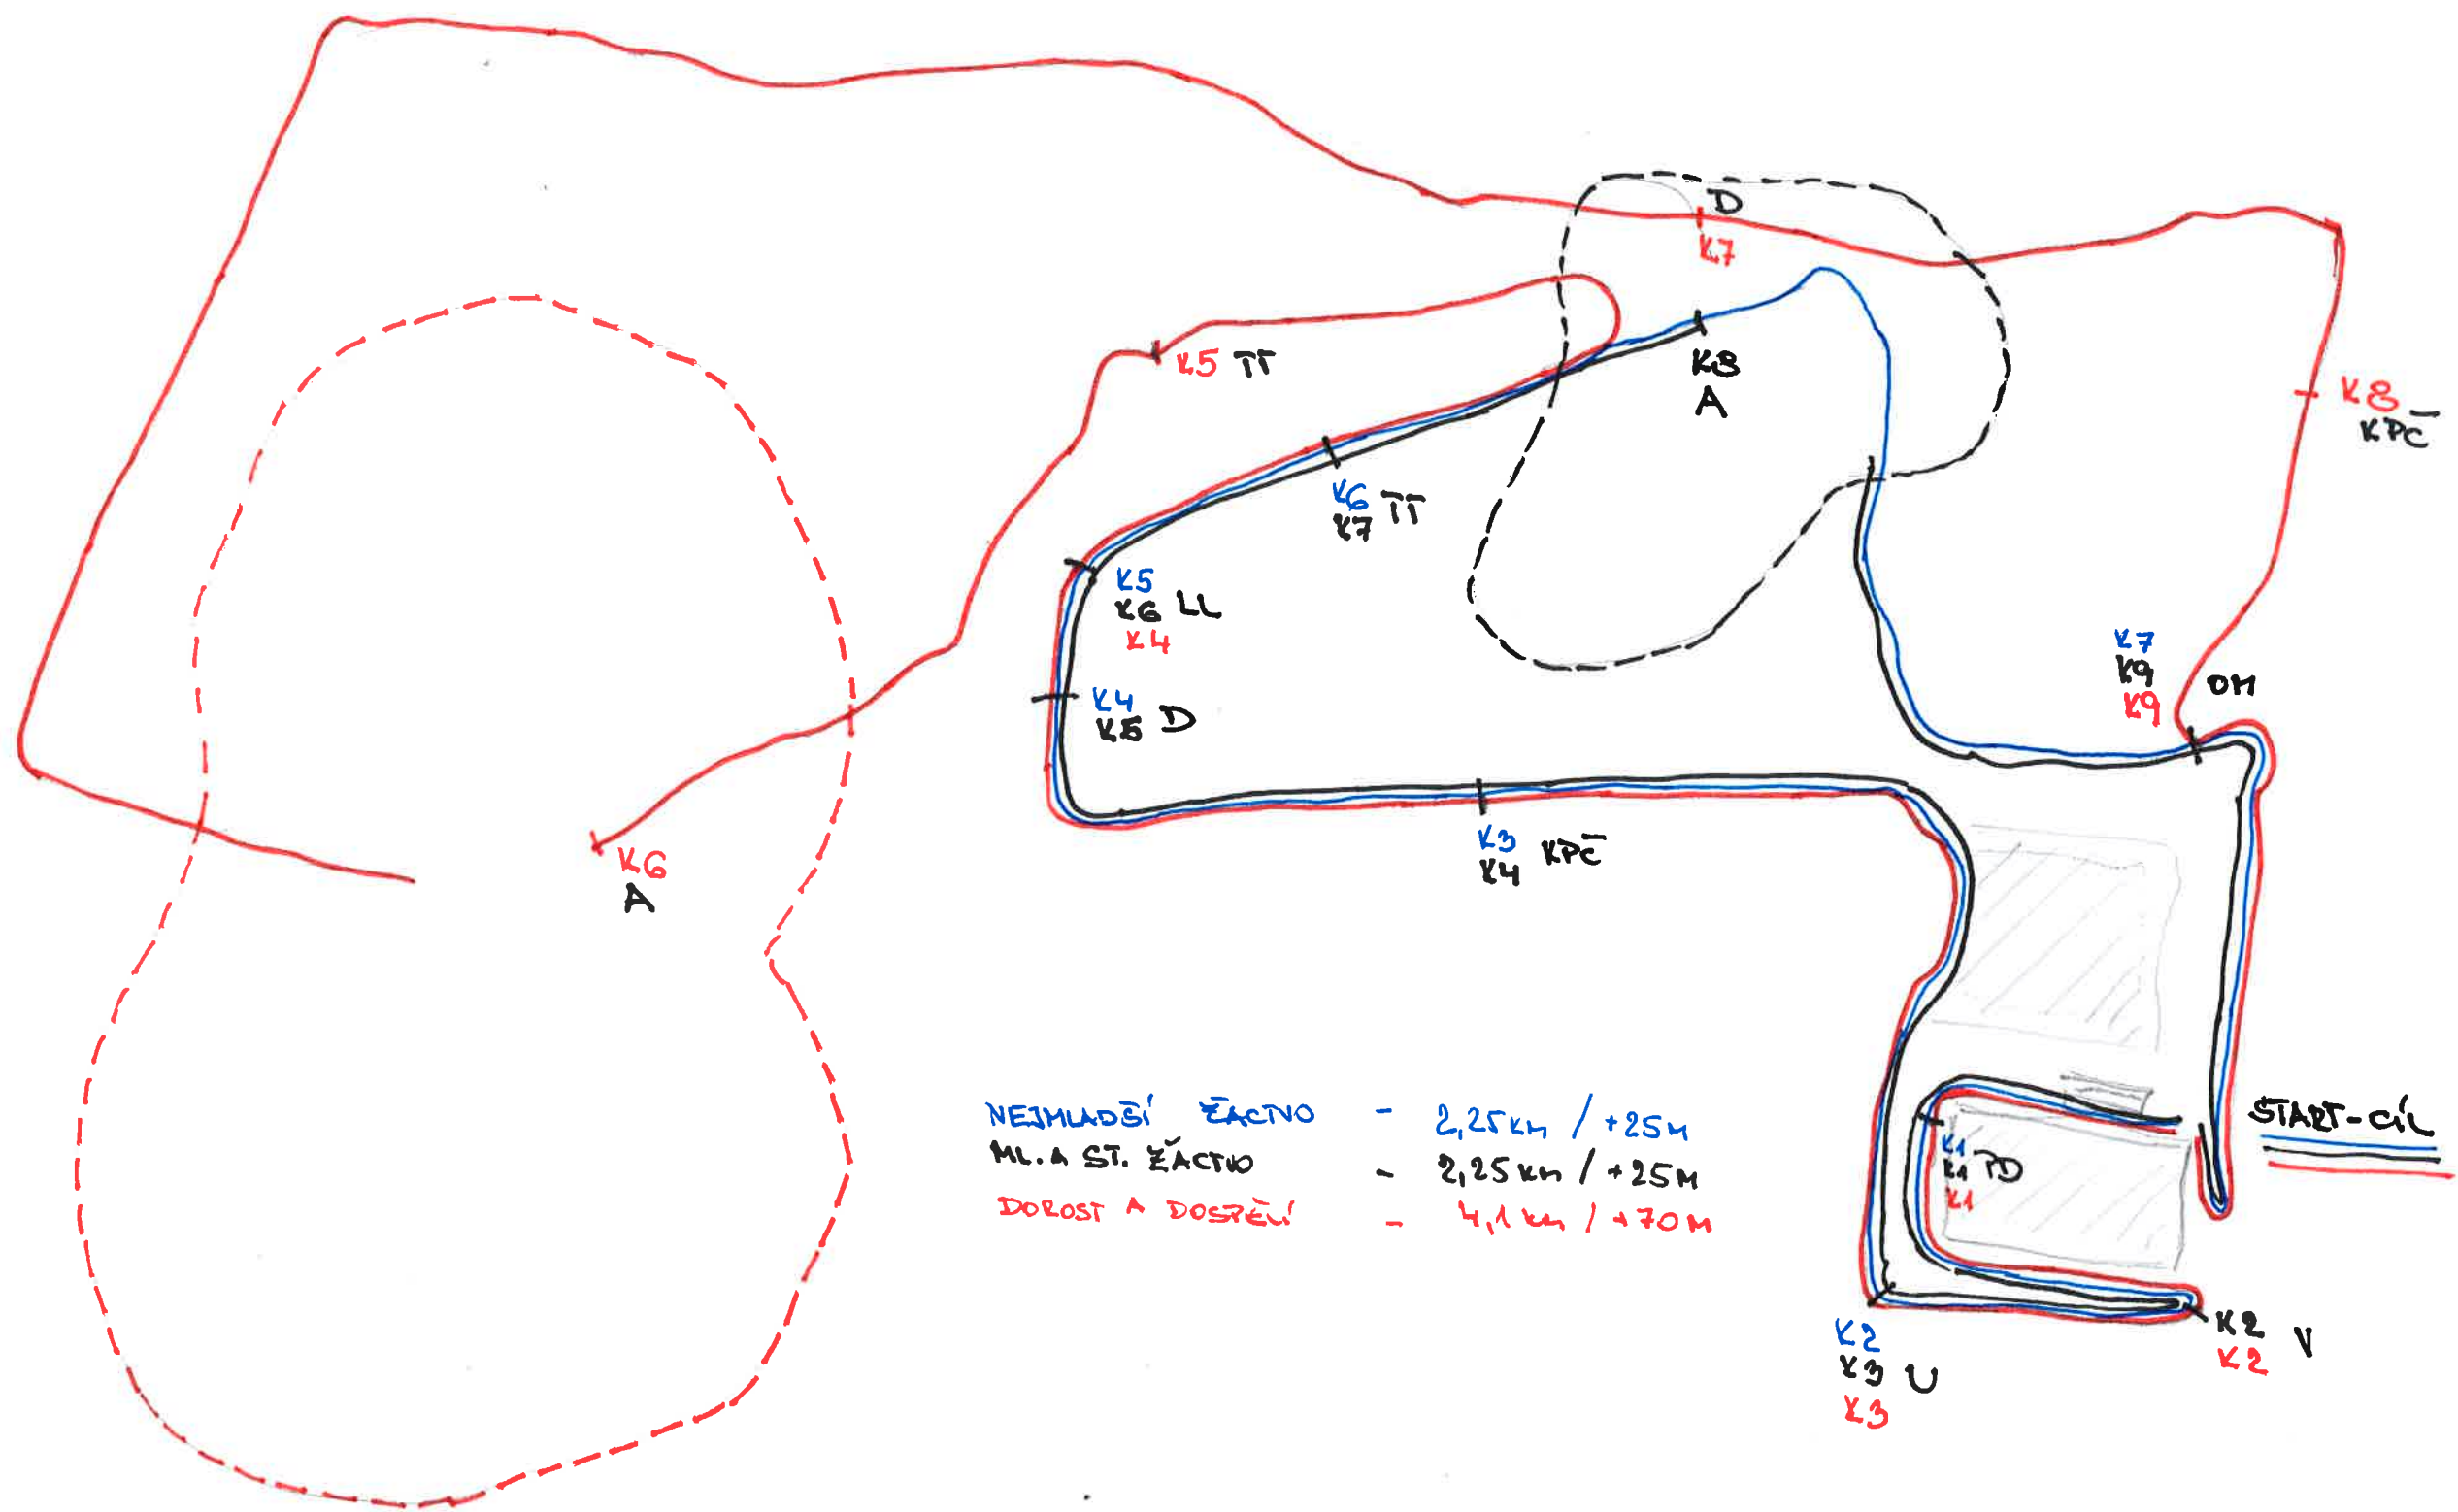 D
K7
K5 TT
K8
A
K8
KPČ
K6 TT
K7
K5
K6 LL
K4
K4
K5 D
K7
K9 OM
K9
K6
A
K3 KPČ
K4
NEJMLADŠÍ ŽACTVO - 2,25 KM / +25M
ML. A ST. ŽÁCTVO - 2,25 KM / +25M
DOROST A DOSPĚLÍ - 4,1 KM / +70M
START-CÍL
K1
K1 PD
K1
K2
K3 U
K3
K2 V
K2